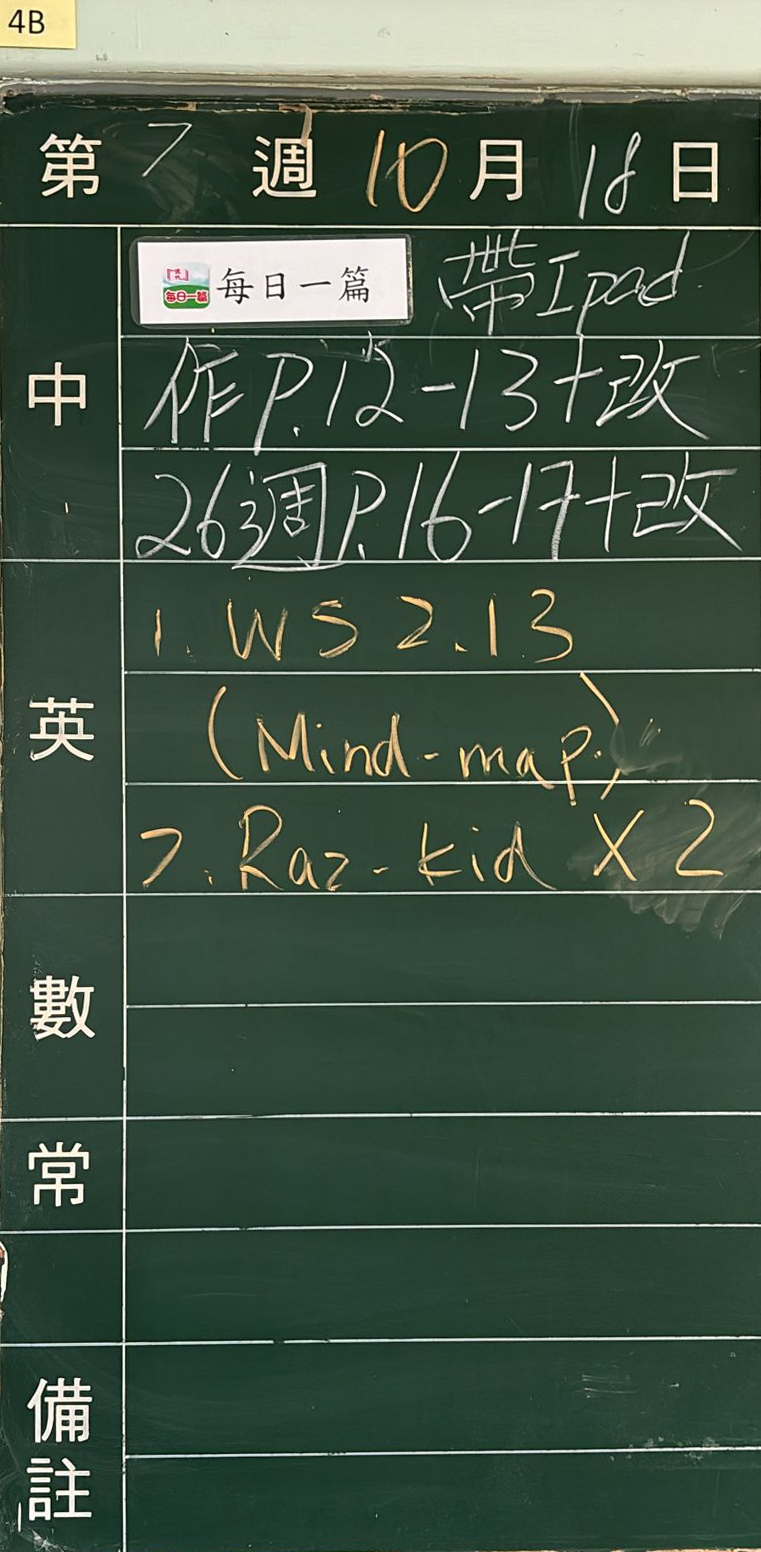 4B
第 7 週 10 月 18 日
中
每日一篇 帶Ipad
作P.12-13+改
26週P.16-17+改
英
1. WS 2.13
(Mind-map)
2. Raz-kid X 2
數
常
備註